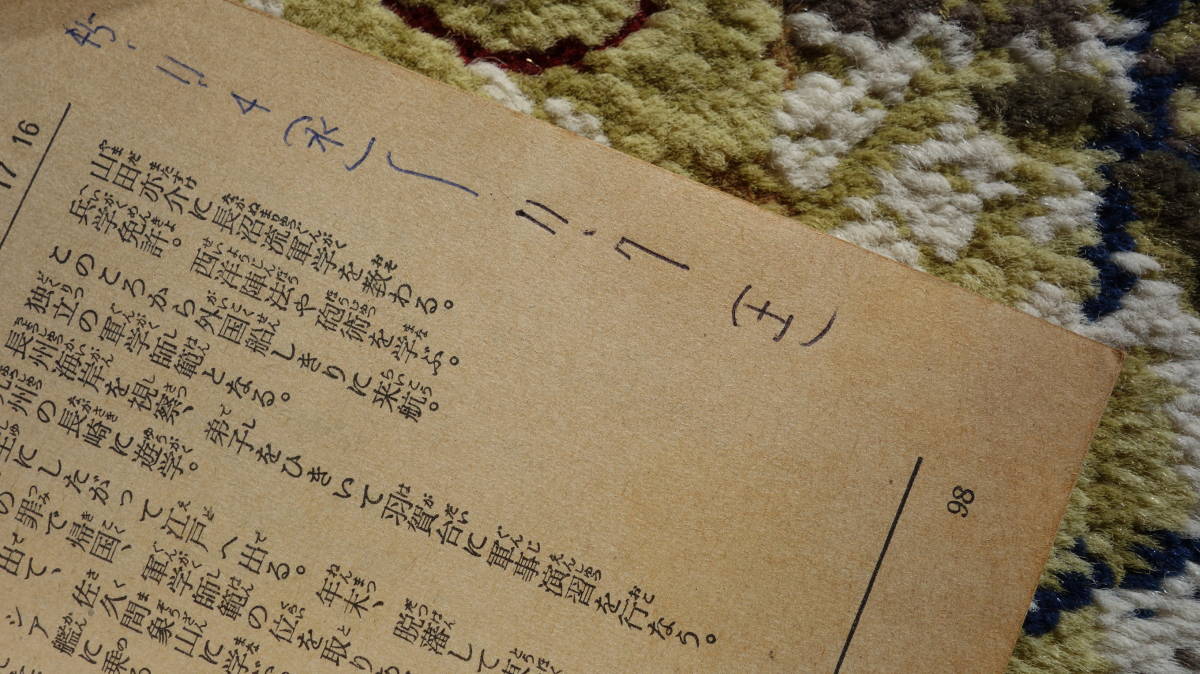 11.4(水)〜11.7(土)
98
16
17
山田亦介に長沼流軍学を教わる。
兵学免許。西洋陣法や砲術を学ぶ。
このころから外国船しきりに来航。
独立の軍学師範となる。
長州海岸を視察、弟子をひきいて羽賀台に軍事演習を行なう。
州の長崎に遊学。
主にしたがって江戸へ出る。年末、脱藩して
の罪で帰国、軍学師範の位を取り
出て、佐久間象山に学
シア艦に乗